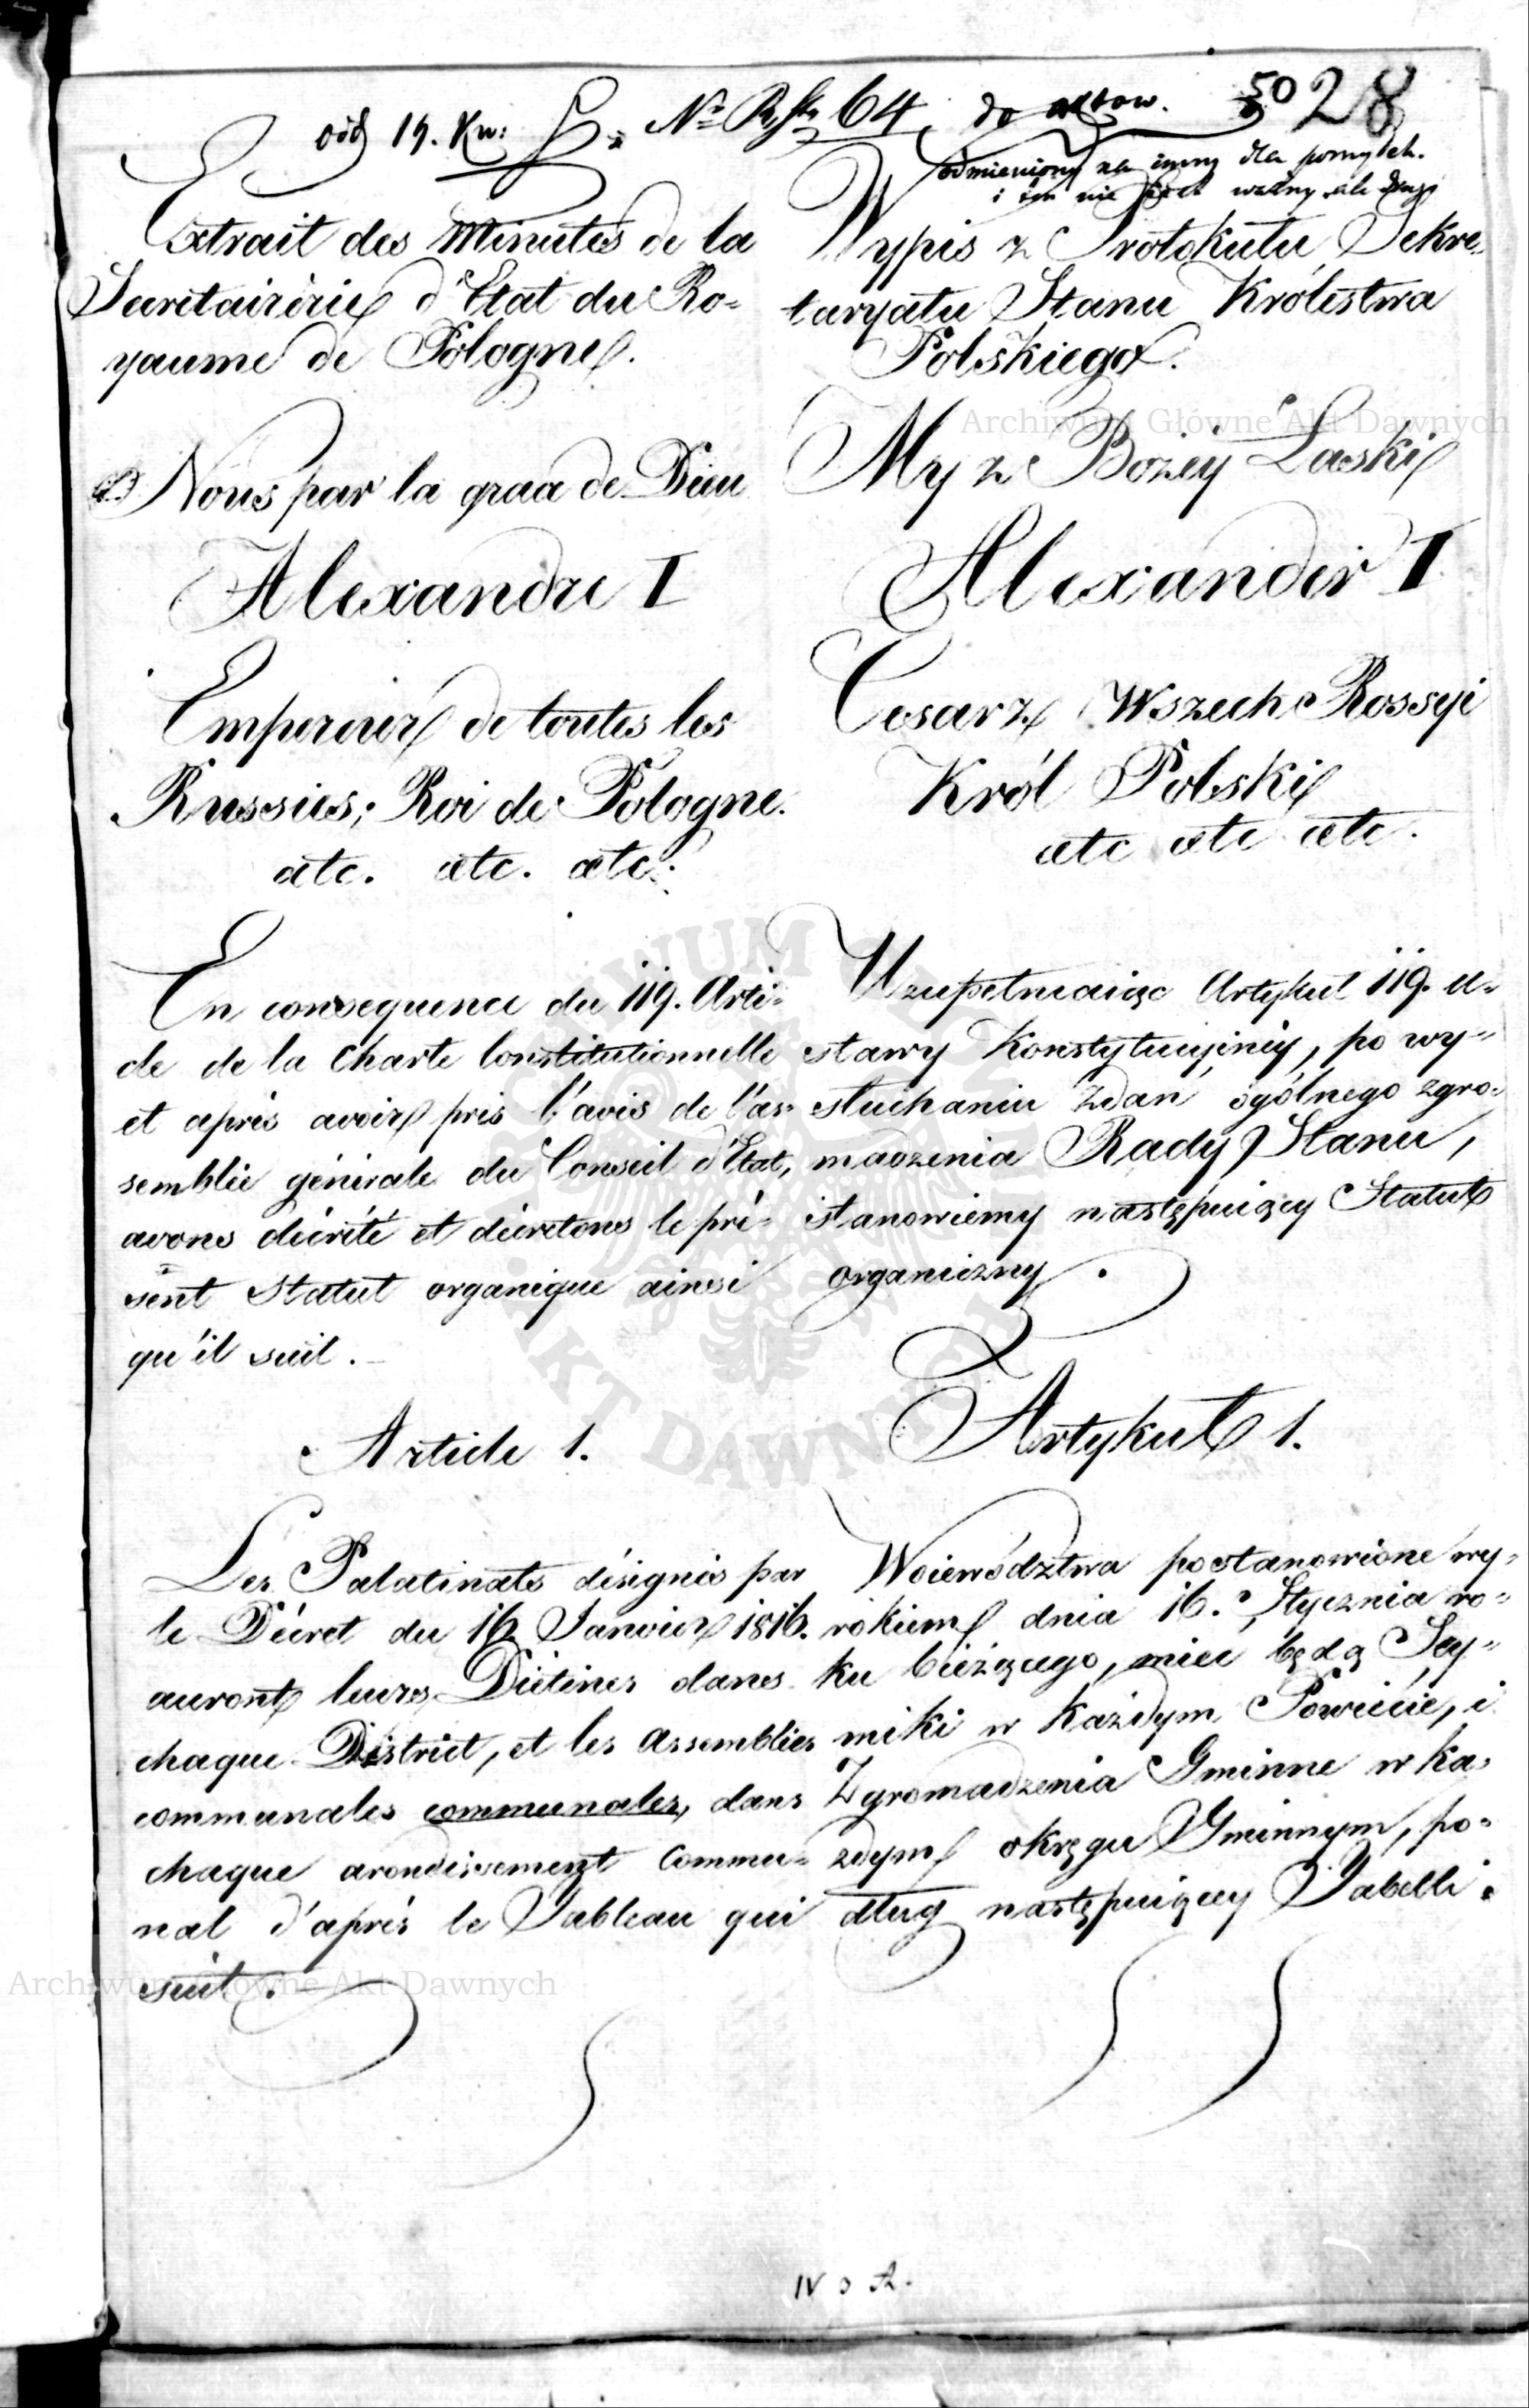 odd 19. Kw: No 64 do aktow. 50 28
odmieniony na inny dla pomyłek.
i ten nie jest ważny ale drugi
Extrait des Minutes de la
Secretairèrie d'Etat du Ro-
yaume de Pologne.
Nous par la grace de Dieu
Alexandre I
Empereur de toutes les
Russies; Roi de Pologne.
etc. etc. etc.
En consequence du 119. Arti-
cle de la Charte Constitutionnelle
et après avoir pris l'avis de l'as-
semblée générale du Conseil d'Etat,
avons décrété et décretons le pré-
sent Statut organique ainsi
qu'il suit.
Article 1.
Les Palatinats désignés par
le Décret du 16 Janvier 1816.
auront leurs Diètines dans
chaque District, et les Assemblées
communales communales, dans
chaque arondissement Commu-
nal d'après le Tableau qui
suit.
Wypis z Protokułu Sekre-
taryatu Stanu Królestwa
Polskiego.
My z Bożey Łaski
Alexander I
Cesarz Wszech Rossyi
Król Polski
etc etc etc.
Uzupełniaiąc Artykuł 119. u-
stawy Konstytucyiney, po wy-
słuchaniu Zdań ogólnego zgro-
madzenia Rady Stanu,
stanowiemy następuiący Statut
organiczny.
Artykuł 1.
Woiewództwa postanowione wy-
rokiem dnia 16. Stycznia ro-
ku bieżącego, mieć będą Sey-
miki w każdym Powiecie, i
Zgromadzenia Gminne w ka-
żdym okręgu Gminnym, po-
dług następuiącey Tabelli.
Archiwum Główne Akt Dawnych
ARCHIWUM GŁÓWNE AKT DAWNYCH
Archiwum Główne Akt Dawnych